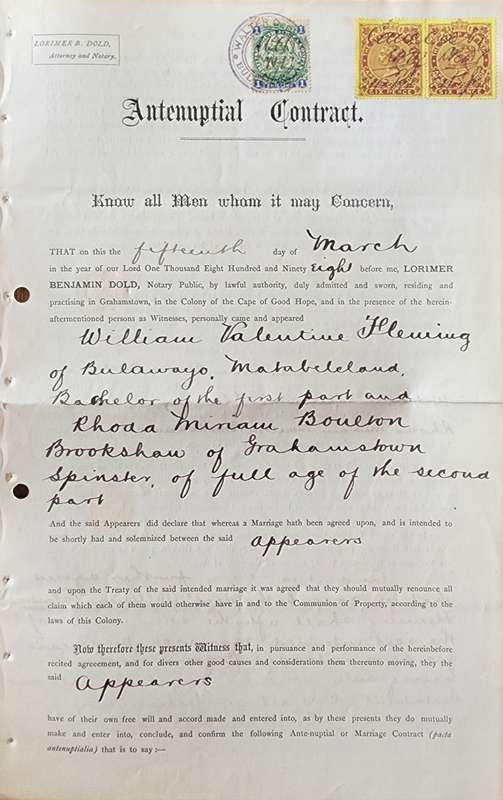 LORIMER B. DOLD,
Attorney and Notary.
SIX PENCE
SIX PENCE
Antenuptial Contract.
Know all Men whom it may Concern,
THAT on this the fifteenth day of March
in the year of our Lord One Thousand Eight Hundred and Ninety Eight before me, LORIMER
BENJAMIN DOLD, Notary Public, by lawful authority, duly admitted and sworn, residing and
practising in Grahamstown, in the Colony of the Cape of Good Hope, and in the presence of the herein-
aftermentioned persons as Witnesses, personally came and appeared
William Valentine Fleming
of Bulawayo, Matabeleland,
Bachelor of the first part and
Rhoda Miriam Boulton
Brookshaw of Grahamstown
Spinster, of full age of the second
part
And the said Appearers did declare that whereas a Marriage hath been agreed upon, and is intended
to be shortly had and solemnized between the said appearers
and upon the Treaty of the said intended marriage it was agreed that they should mutually renounce all
claim which each of them would otherwise have in and to the Communion of Property, according to the
laws of this Colony.
Now therefore these presents Witness that, in pursuance and performance of the hereinbefore
recited agreement, and for divers other good causes and considerations them thereunto moving, they the
said Appearers
have of their own free will and accord made and entered into, as by these presents they do mutually
make and enter into, conclude, and confirm the following Ante-nuptial or Marriage Contract (pacta
antenuptialia) that is to say:—